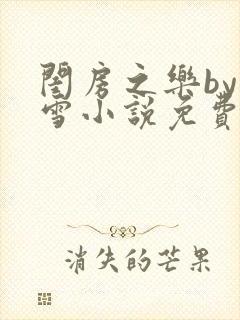 閨房之樂by
雪小說免費
消失的芒果